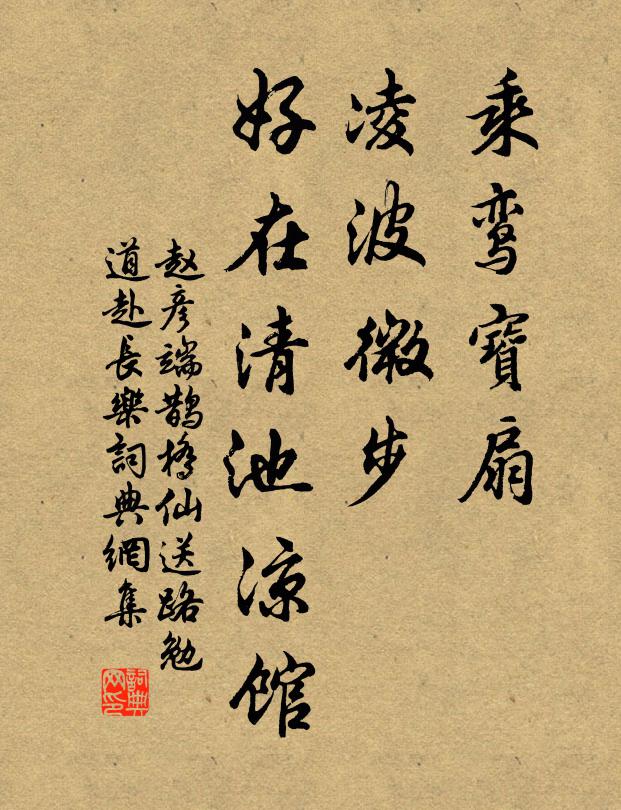 乘鸾寶扇
凌波微步
好在清池涼馆
赵彦端鹊橋仙送路勉
道赴長樂詞典網集
詞典
网印